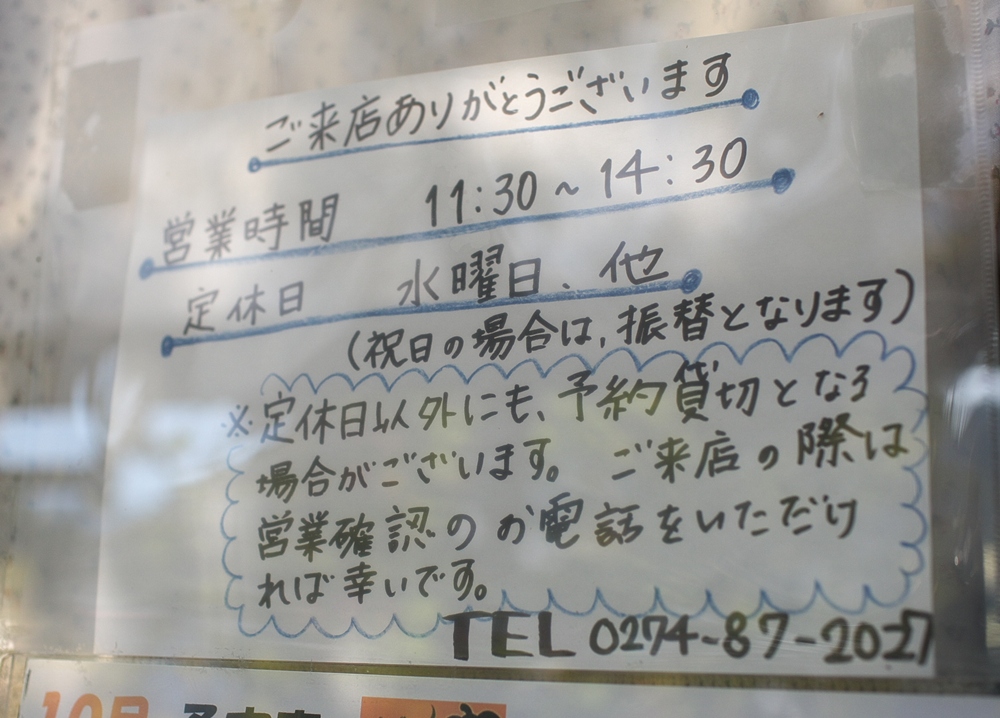 ご来店ありがとうございます
営業時間 11:30～14:30
定休日 水曜日、他
(祝日の場合は、振替となります)
※定休日以外にも、予約貸切となる
場合がございます。 ご来店の際は
営業確認のお電話をいただけ
れば幸いです。
TEL 0274-87-2027
10月